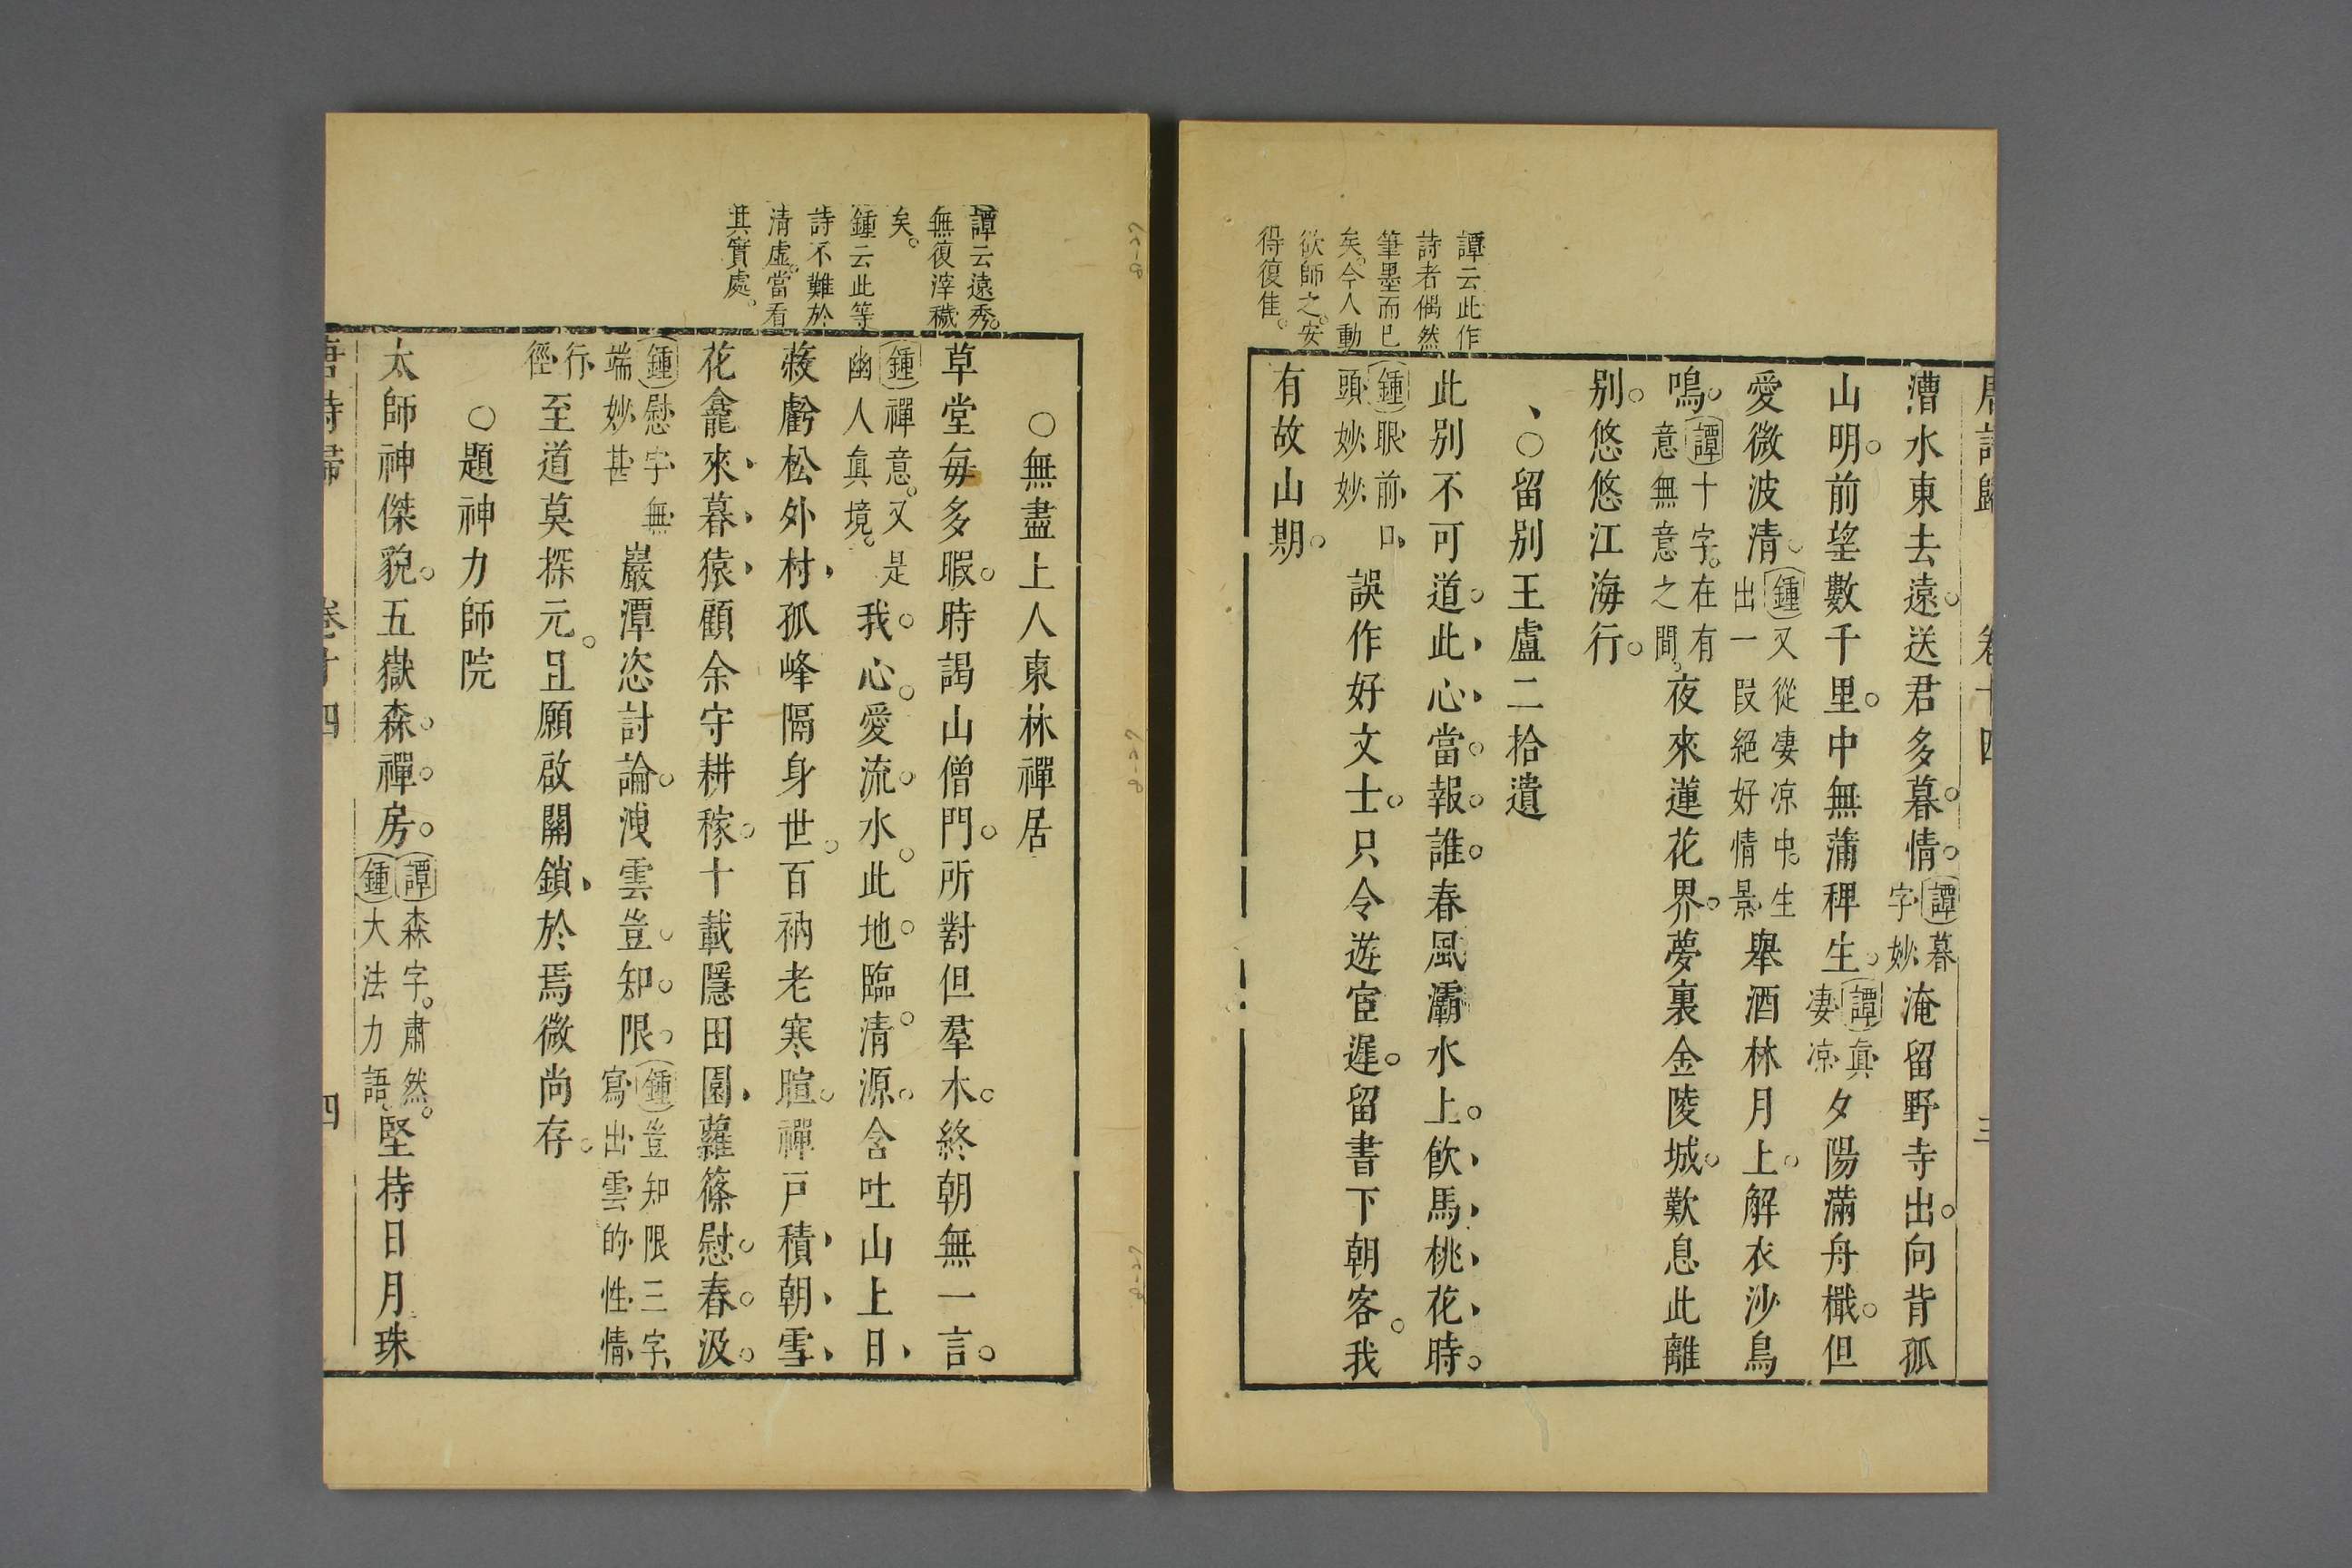 譚云此作
詩者偶然
筆墨而已
矣。今人動
欲師之。安
得復佳。
漕水東去遠。送君多暮情。譚暮字妙淹留野寺出。向背孤
山明。前望數千里。中無蒲稗生。譚真凄凉夕陽滿舟檝。但
愛微波清。鍾又從凄凉中。生出一段絕好情景舉酒林月上。解衣沙鳥
鳴。譚十字。在有意無意之間。夜來蓮花界。夢裏金陵城。歎息此離
别。悠悠江海行。
、○留别王盧二拾遺
此别不可道。此心當報誰。春風灞水上。飲馬桃花時。
鍾眼前口頭妙妙誤作好文士。只令遊宦遲。留書下朝客。我
有故山期。
譚云遠秀。
無復滓穢
矣。
鍾云此等
詩不難於
清虛。當看
其實處。
○無盡上人東林禪居
草堂每多暇。時謁山僧門。所對但羣木。終朝無一言。
鍾禪意。又是幽人真境。我心愛流水。此地臨清源。含吐山上日
蔽虧松外村。孤峰隔身世。百衲老寒暄。禪戶積朝雪
花龕來暮猿。顧余守耕稼。十載隱田園。蘿篠慰春汲。
鍾慰字無端妙甚巖潭恣討論。洩雲豈知限。鍾豈知限三字寫出雲的性情
行徑至道莫探元。且願啟關鎖。於焉微尚存。
○題神力師院
太師神傑貌。五嶽森禪房。譚森字。肅然。鍾大法力語。堅持日月珠
唐詩歸
卷十四
四